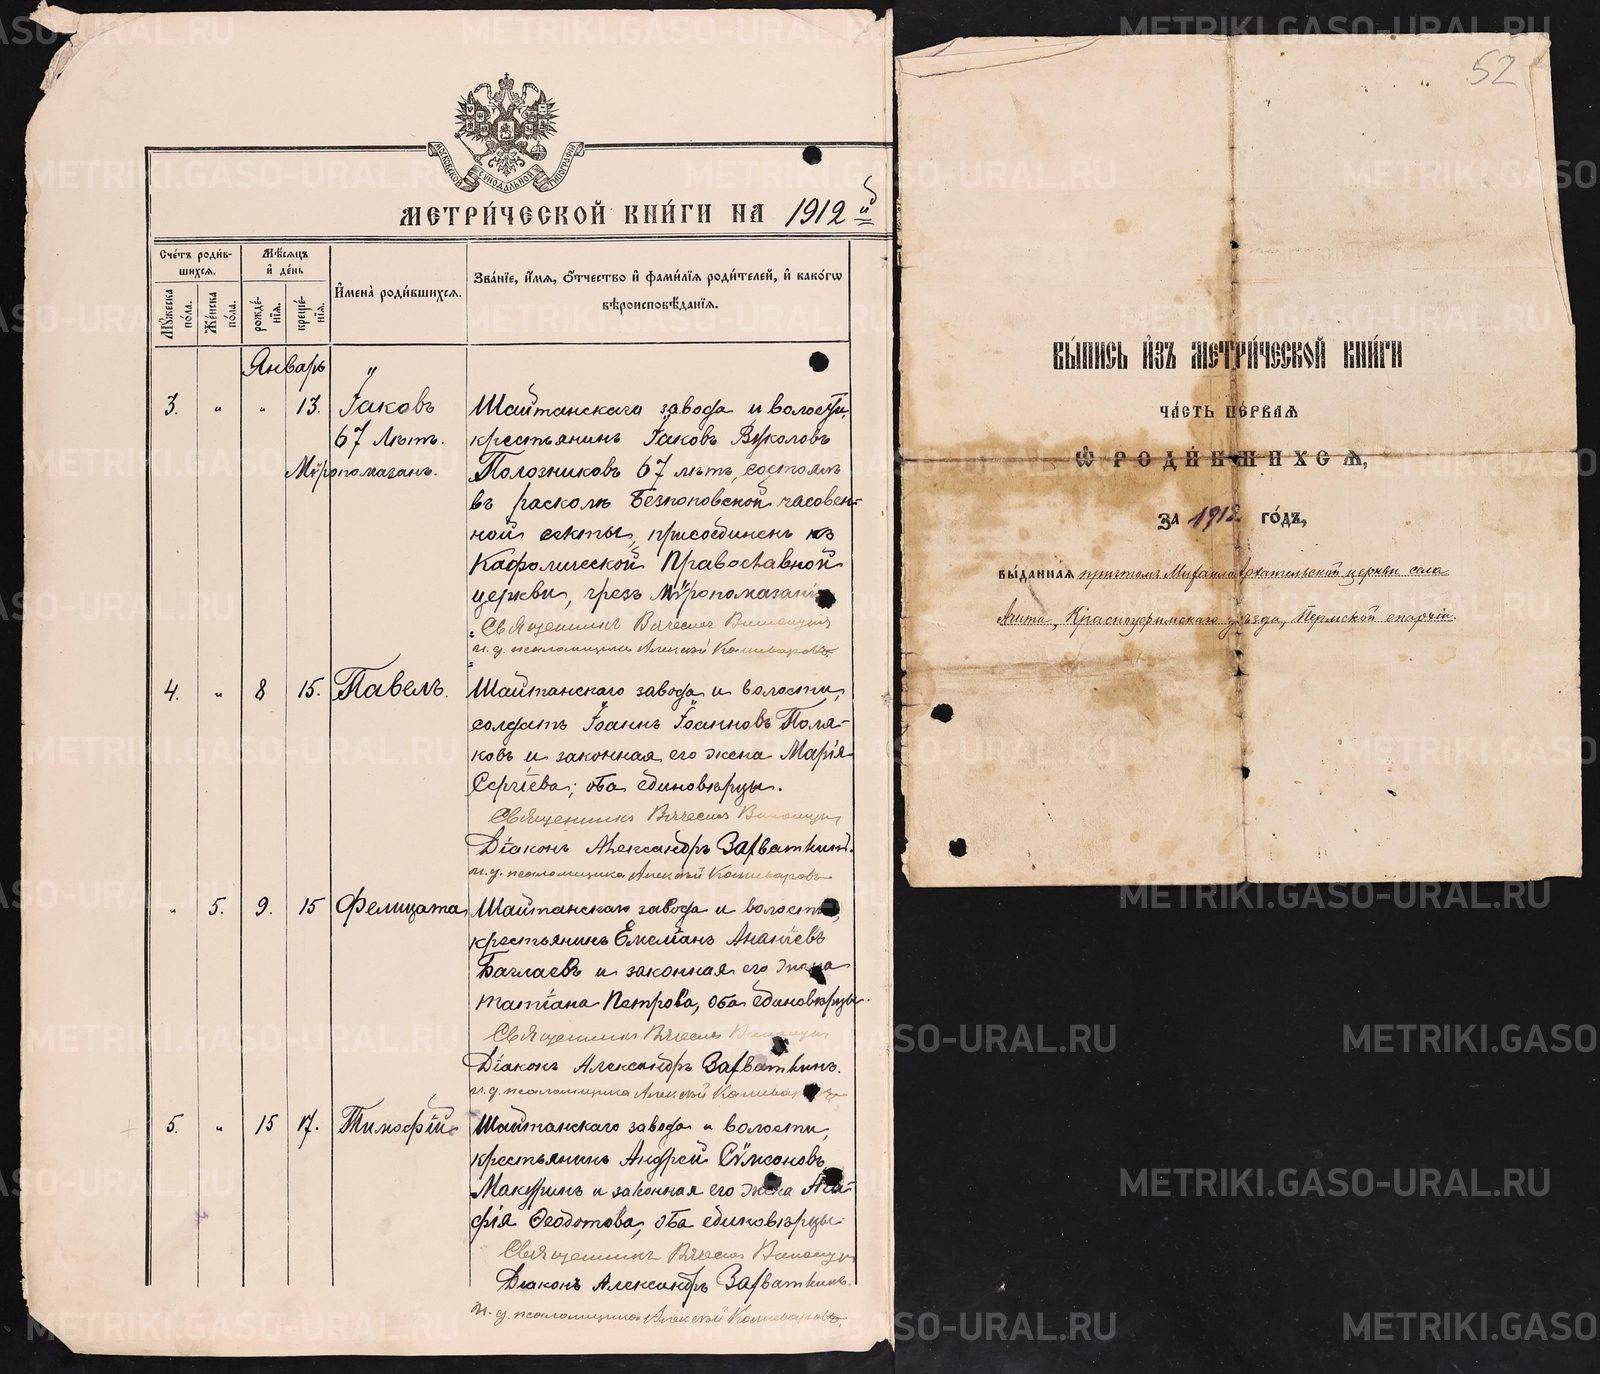 МОСКОВСКОЙ СѴНОДАЛЬНОЙ ТИПОГРАФІИ
МЕТРИ́ЧЕСКОЙ КНИ́ГИ НА 1912й
Сче́тъ роди́в-
шихсѧ.
Мѣ́сѧцъ
и҆ де́нь
Мꙋ́жеска
по́ла.
Же́нска
по́ла.
рожде́-
нїѧ.
креще́-
нїѧ.
И҆мена̀ роди́вшихсѧ.
Зва́нїе, и҆́мѧ, ѻ҆́тчество и҆ фами́лїѧ роди́телей, и҆ како́гѡ
вѣроисповѣ́данїѧ.
Январь „
3. „ „ 13. Іаковъ
67 лѣтъ.
Мѵропомазанъ.
Шайтанскаго завода и волости,
крестьянинъ Іаковъ Вуколовъ
Полозниковъ 67 лѣтъ, состоялъ
въ расколѣ Безпоповской часовен-
ной секты, присоединенъ къ
Кафолической Православной
церкви, чрезъ Мѵропомазаніе
Священникъ Вячеслав
и.д. псаломщика Алексѣй Кашеваровъ
4. „ 8 15. Павелъ.
Шайтанскаго завода и волости,
солдатъ Іоаннъ Іоанновъ Поля-
ковъ и законная его жена Марія
Сергіева; оба единовѣрцы.
Священникъ Вячеслав
Діаконъ Александръ Заѳваткинъ.
и.д. псаломщика Алексѣй Кашеваровъ
„ 5. 9. 15 Фелицата
Шайтанскаго завода и волости,
крестьянинъ Емеліанъ Ананіевъ
Баглаевъ и законная его жена
Татіана Петрова, оба единовѣрцы.
Священникъ Вячеслав
Діаконъ Александръ Заѳваткинъ.
и.д. псаломщика Алексѣй Кашеваровъ
5. „ 15 17. Тимофѣй
Шайтанскаго завода и волости,
крестьянинъ Андрей Сѵмеоновъ
Макуринъ и законная его жена Ага-
фія Ѳеодотова, оба единовѣрцы
Священникъ Вячеслав
Діаконъ Александръ Заѳваткинъ.
и.д. псаломщика Алексѣй Кашеваровъ
52
ВЫ́ПИСЬ И҆ЗЪ МЕТРИ́ЧЕСКОЙ КНИ́ГИ
ЧА́СТЬ ПЕ́РВАѦ
Ѡ҆ РОДИ́ВШИХСѦ,
ЗА 1912 ГО́ДЪ,
ВЫ́ДАННАѦ причтомъ Михаило-Архангельской церкви села
Ачита, Красноуфимскаго уѣзда, Пермской епархіи.
METRIKI.GASO-URAL.RU